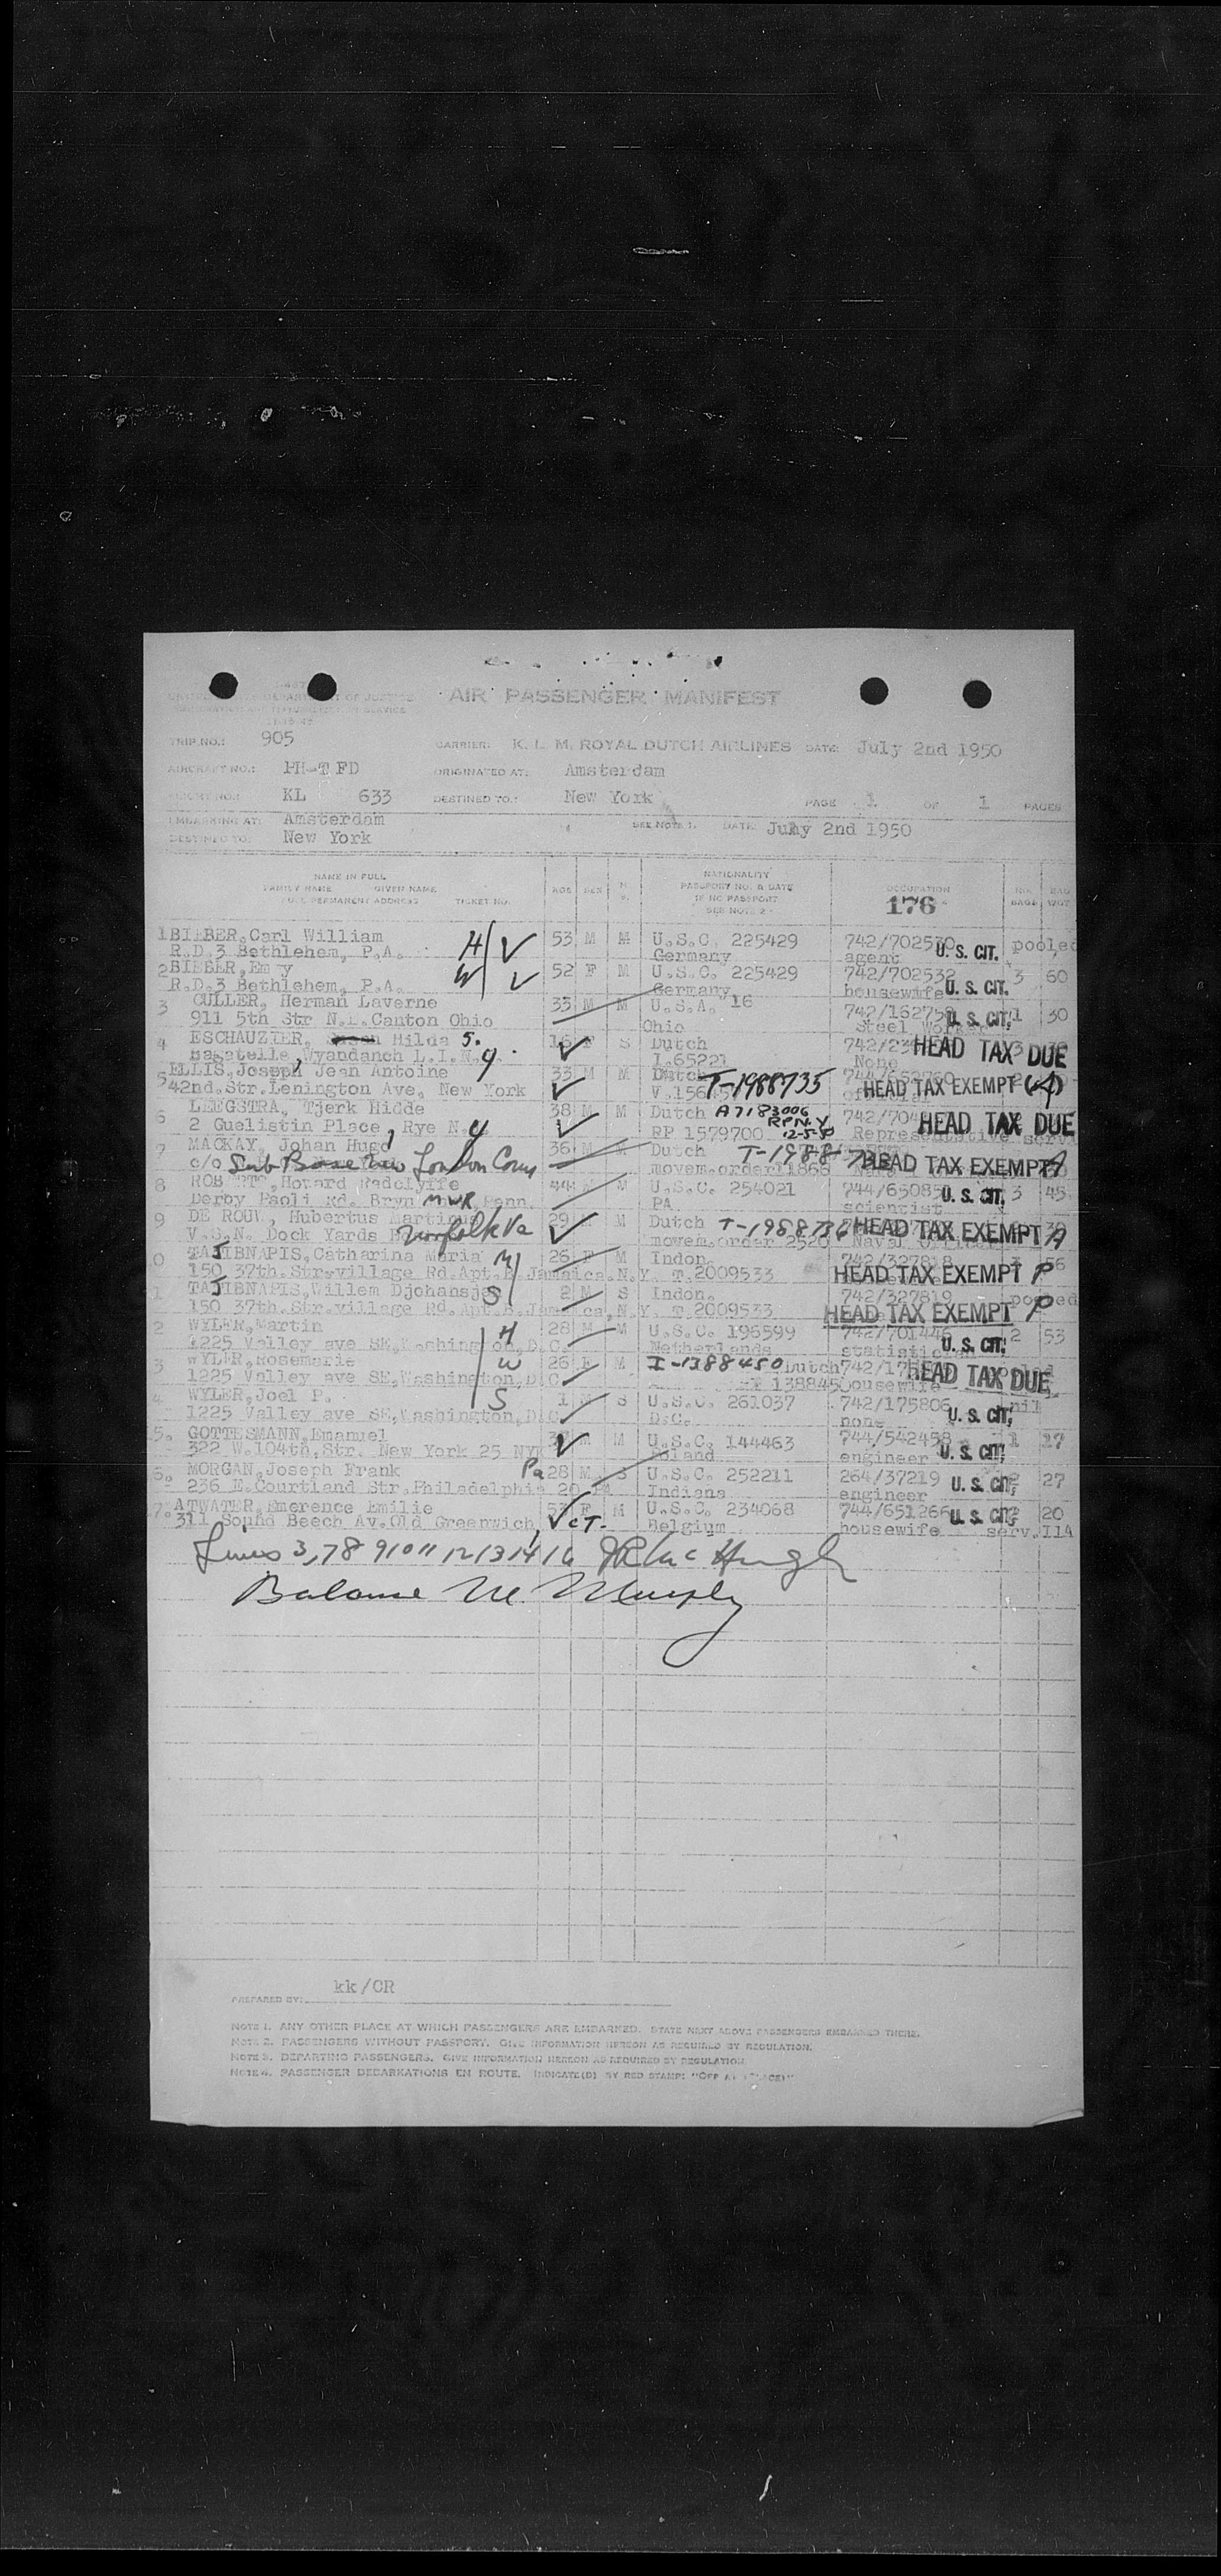 AIR PASSENGER MANIFEST
TRIP NO.: 905 CARRIER: K. L. M. ROYAL DUTCH AIRLINES DATE: July 2nd 1950
AIRCRAFT NO.: PH-TFD ORIGINATED AT: Amsterdam
FLIGHT NO.: KL 633 DESTINED TO: New York PAGE 1 OF 1 PAGES
EMBARKING AT: Amsterdam SEE NOTE 1. DATE: July 2nd 1950
DESTINED TO: New York
NAME IN FULL
FAMILY NAME GIVEN NAME
FULL PERMANENT ADDRESS TICKET NO.
AGE SEX
NATIONALITY
PASSPORT NO. & DATE
IF NO PASSPORT
SEE NOTE 2
OCCUPATION
176
NO. BAGS BAG WGT
1 BIEBER, Carl William H 53 M M U.S.C. 225429 742/702530 pooled
R.D.3 Bethlehem, P.A. Germany agent U. S. CIT.
2 BIEBER, Emmy W 52 F M U.S.C. 225429 742/702532 3 60
R.D.3 Bethlehem, P.A. Germany housewife U. S. CIT.
3 CULLER, Herman Laverne 33 M M U.S.A. 16 742/162750 1 30
911 5th Str N.E. Canton Ohio Ohio Steel U. S. CIT.
4 ESCHAUZIER, Hilda S. 16 F S Dutch HEAD TAX DUE
Bagatelle, Wyandanch L.I.N.Y. None
5 ELLIS, Joseph Jean Antoine 33 M M Dutch T-1988735 HEAD TAX EXEMPT (A)
42nd. Str. Lenington Ave, New York
6 LEEGSTRA, Tjerk Hidde 38 M M Dutch A7183006 HEAD TAX DUE
2 Guelistin Place, Rye N.Y RP 1579700 RPN.Y 12-5-50 Representative
7 MACKAY, Johan Hugo 36 M Dutch HEAD TAX EXEMPT A
c/o Sub Base New London Conn movem.order
8 Howard Radclyffe 44 M M U.S.C. 254021 744/65085 3 45
Derby Paoli Rd. Bryn MWR Penn PA. scientist U. S. CIT.
9 DE ROUW, Hubertus 29 M Dutch T-1988736 HEAD TAX EXEMPT A
V.S.N. Dock Yards Norfolk Va movem.order
0 TAJIBNAPIS, Catharina Maria M 26 F M Indon. HEAD TAX EXEMPT P
150 37th. Str. village Rd. Apt. Jamaica.N.Y. T.2009533
1 TAJIBNAPIS, Willem S 2 M S Indon. 742/327819 pooled
150 37th. Str. village Rd. Apt. Jamaica, N.Y. T.2009533 HEAD TAX EXEMPT P
2 WYLER, Martin H 28 M M U.S.C. 196599 742/701446 2 53
1225 Valley ave SE, Washington, D.C. Netherlands statistician U. S. CIT.
3 WYLER, Rosemarie W 26 F M I-1388450 Dutch HEAD TAX DUE
1225 Valley ave SE, Washington, D.C. housewife
4 WYLER, Joel P. S 1 M S U.S.C. 261037 742/175806 nil
1225 Valley ave SE, Washington, D.C. D.C. none U. S. CIT.
5. GOTTESMANN, Emanuel M M U.S.C. 144463 744/542458 1 27
322 W. 104th. Str. New York 25 NY Poland engineer U. S. CIT.
6. MORGAN, Joseph Frank Pa 28 M S U.S.C. 252211 264/37219 2 27
236 E. Courtland Str. Philadelphia 20 Indiana engineer U. S. CIT.
7. ATWATER, Emerence Emilie F M U.S.C. 234068 744/651266 20
311 Sound Beech Av. Old Greenwich, CT. Belgium housewife U. S. CIT. serv.
Lines 3, 7 8 9 10 11 12 13 14 16 Mc Hugh
Balance M. Murphy
PREPARED BY: kk/CR
NOTE 1. ANY OTHER PLACE AT WHICH PASSENGERS ARE EMBARKED. STATE NEXT ABOVE PASSENGERS EMBARKED THERE.
NOTE 2. PASSENGERS WITHOUT PASSPORT. GIVE INFORMATION HEREON AS REQUIRED BY REGULATION.
NOTE 3. DEPARTING PASSENGERS. GIVE INFORMATION HEREON AS REQUIRED BY REGULATION
NOTE 4. PASSENGER DEBARKATIONS EN ROUTE. INDICATE(D) BY RED STAMP: "OFF AT (PLACE)"